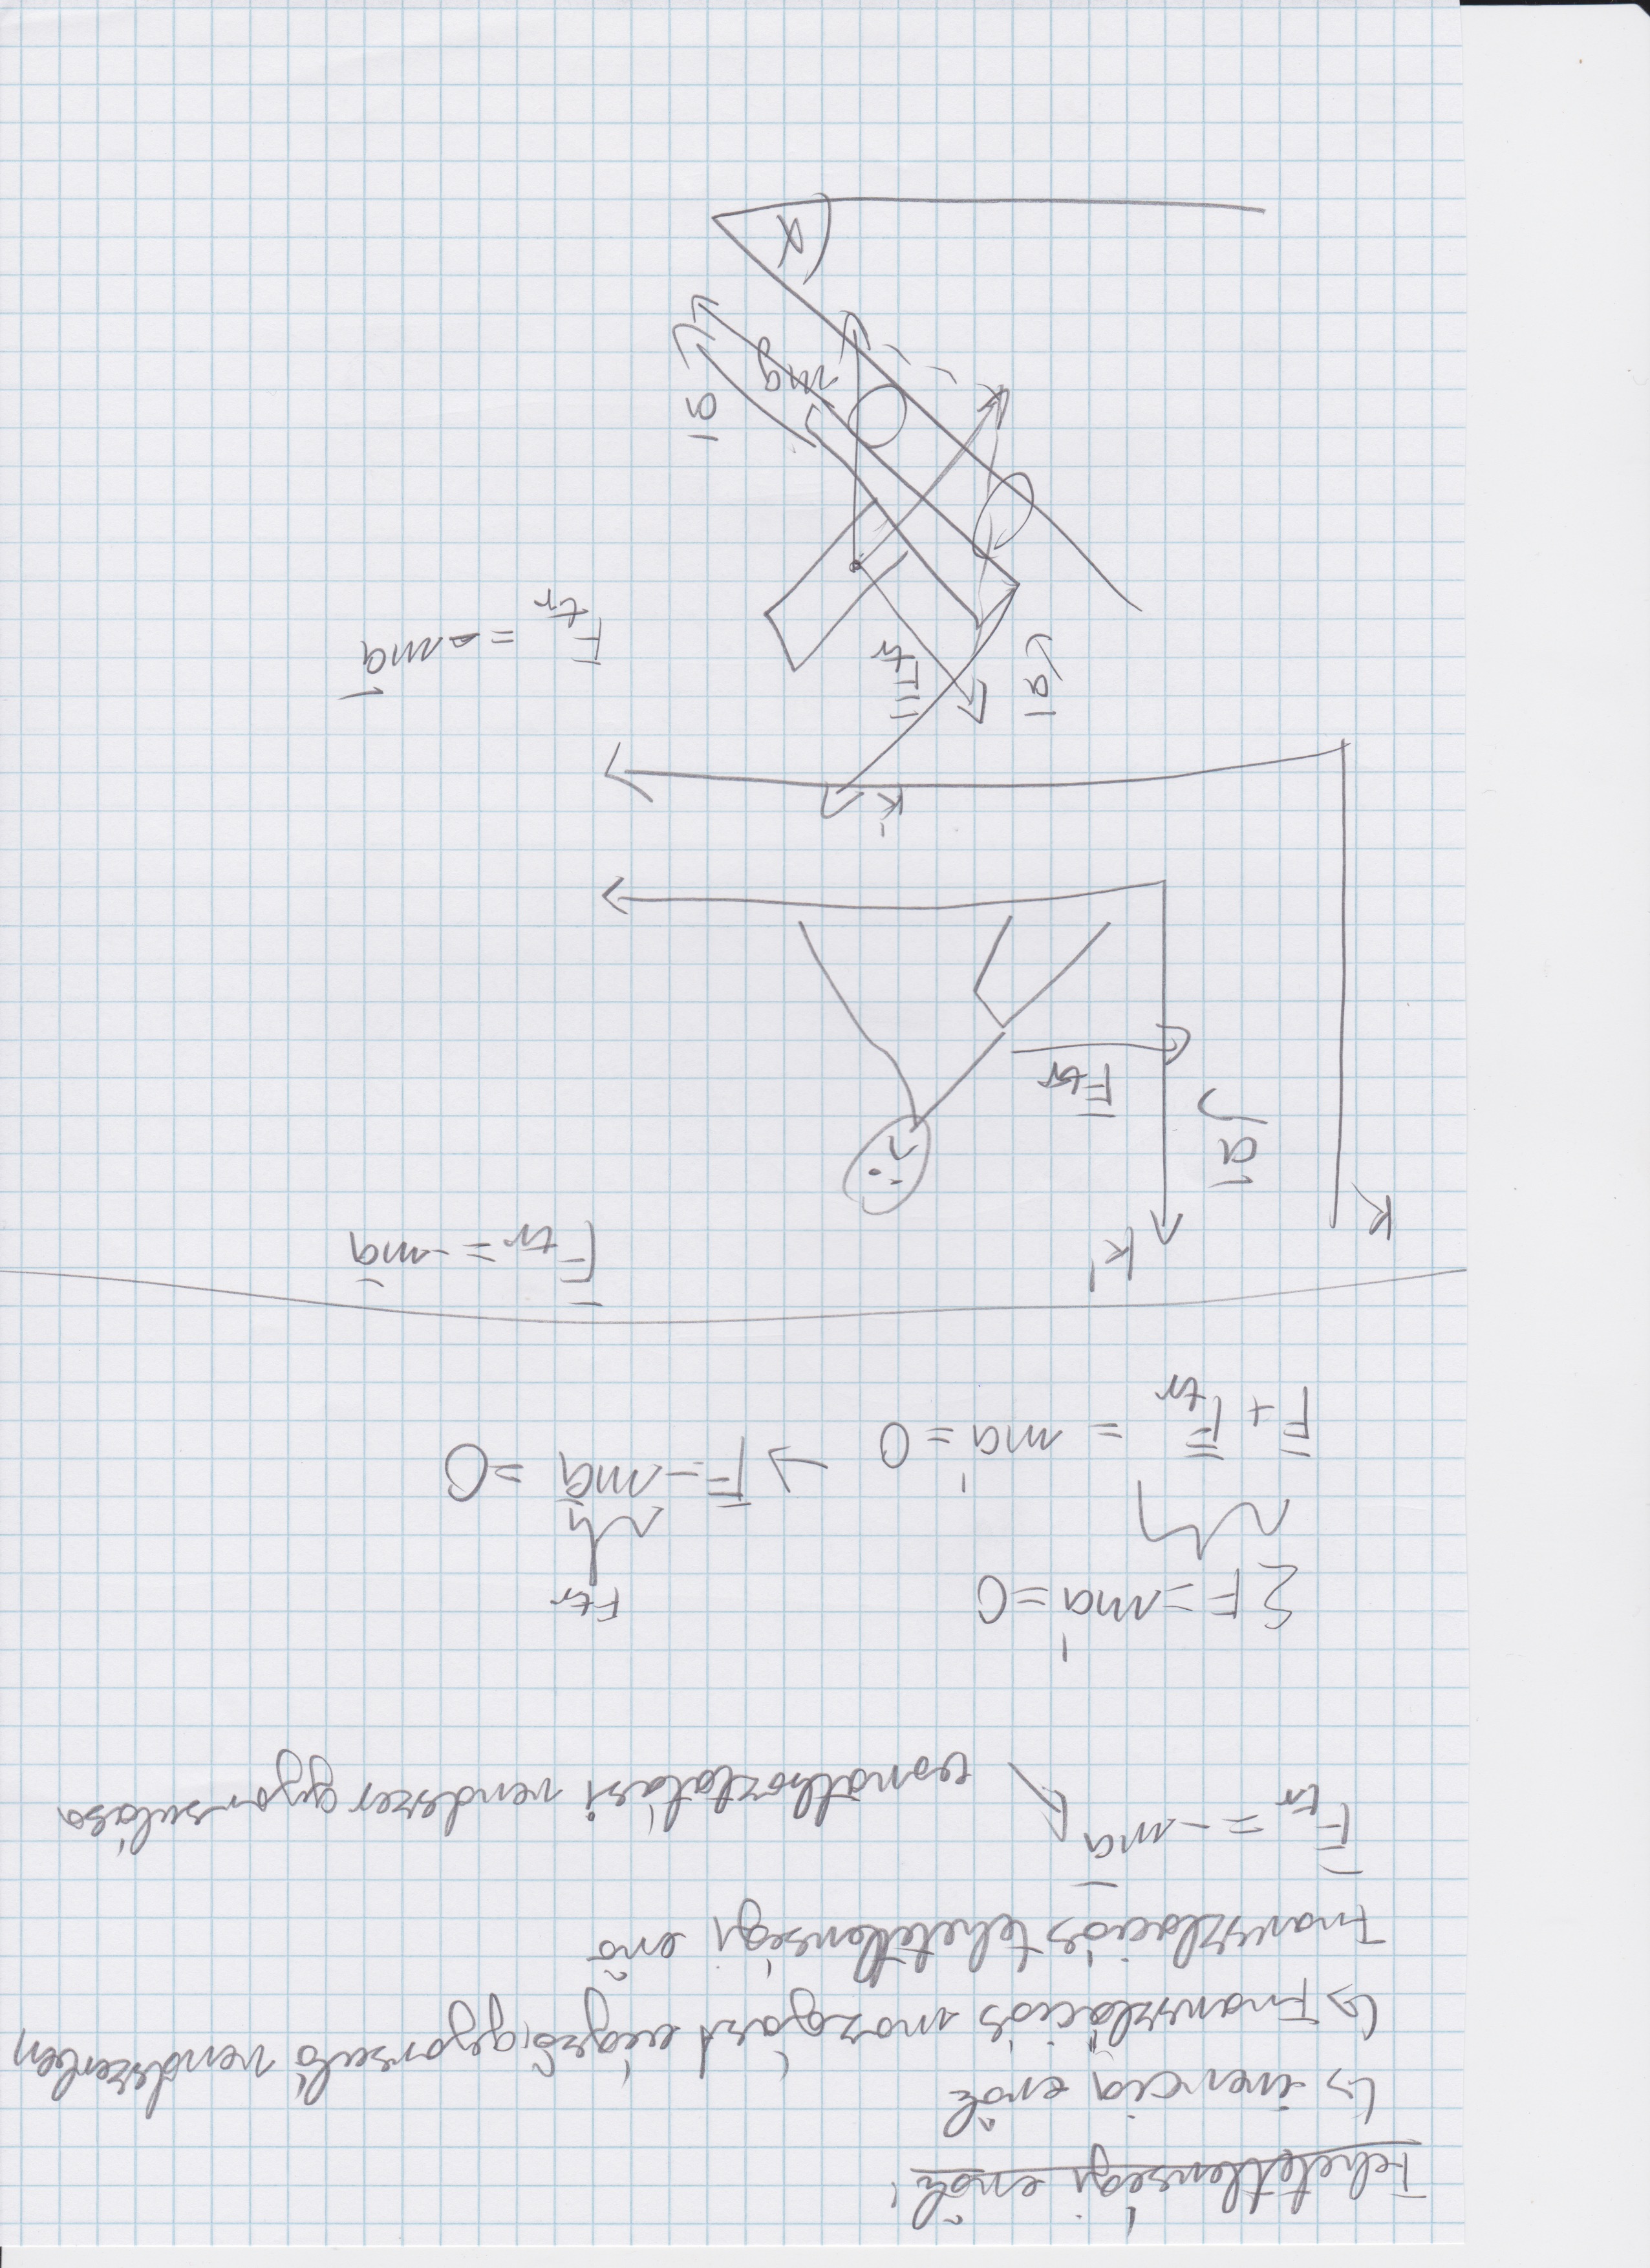 Tehetetlenségi erők:
↳ inercia erők
↳ Transzlációs mozgást végző, gyorsuló rendszerben
Transzlációs tehetetlenségi erő
F̄tr = -mā ↖ vonatkoztatási rendszer gyorsulása
ΣF = ma' = 0
Ftr
F̄ + F̄tr = ma' = 0 → F̄ - mā = 0
F̄tr = -mā
K'
K
ā
F̄tr
K'
F̄tr = -mā
F̄tr
ā
ā
mg
α